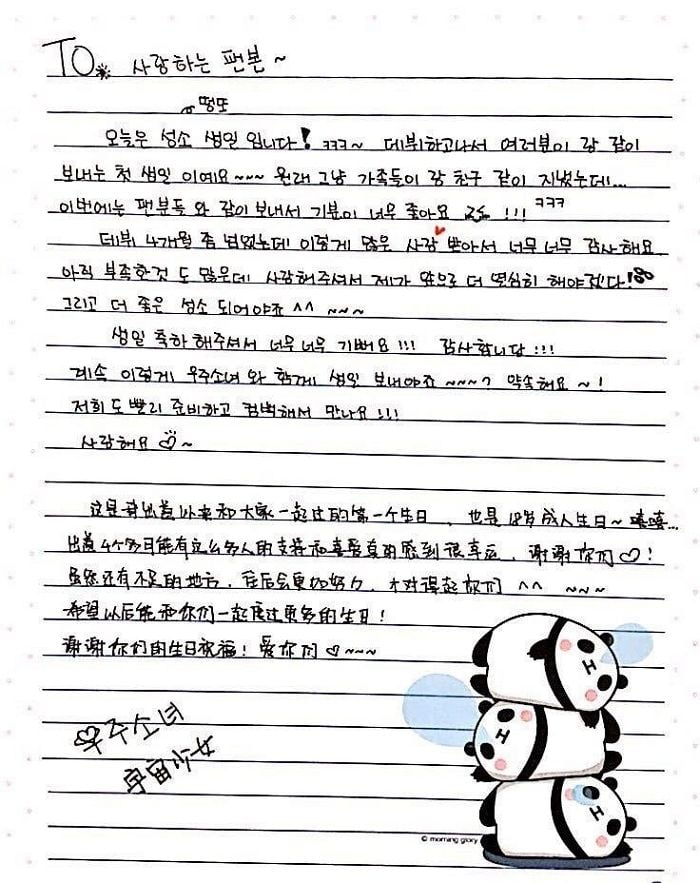 TO. 사랑하는 팬분~
떵또
오늘은 성소 생일 입니다! ㅋㅋㅋ~ 데뷔하고나서 여러분이 랑 같이
보내는 첫 생일 이예요~~~ 원래 그냥 가족들이 랑 친구 같이 지냈는데...
이번에는 팬분들 와 같이 보내서 기분이 너무 좋아요 !!! ㅋㅋㅋ
데뷔 4개월 좀 넘었는데 이렇게 많은 사랑 뽀아서 너무 너무 감사해요.
아직 부족한것 도 많은데 사랑해주셔서 제가 앞으로 더 열심히 해야겠다!
그리고 더 좋은 성소 되어야죠 ^^ ~~~
생일 축하 해주셔서 너무 너무 기뻐요 !!! 감사합니당 !!!
계속 이렇게 우주소녀 와 함께 생일 보내야죠 ~~~? 약속해요 ~!
저희 도 빨리 준비하고 컴백해서 만나요 !!!
사랑해요 ♡~
这是我出道以来和大家一起过的第一个生日，也是18岁成人生日~ 嘻嘻...
出道4个多月能有这么多人的支持和喜爱真的感到很幸运，谢谢你们♡!
虽然还有不足的地方，往后会更加努力，才对得起你们 ^^ ~~~
希望以后能和你们一起度过更多的生日!
谢谢你们的生日祝福! 爱你们♡~~~
우주소녀
宇宙少女
© morning glory